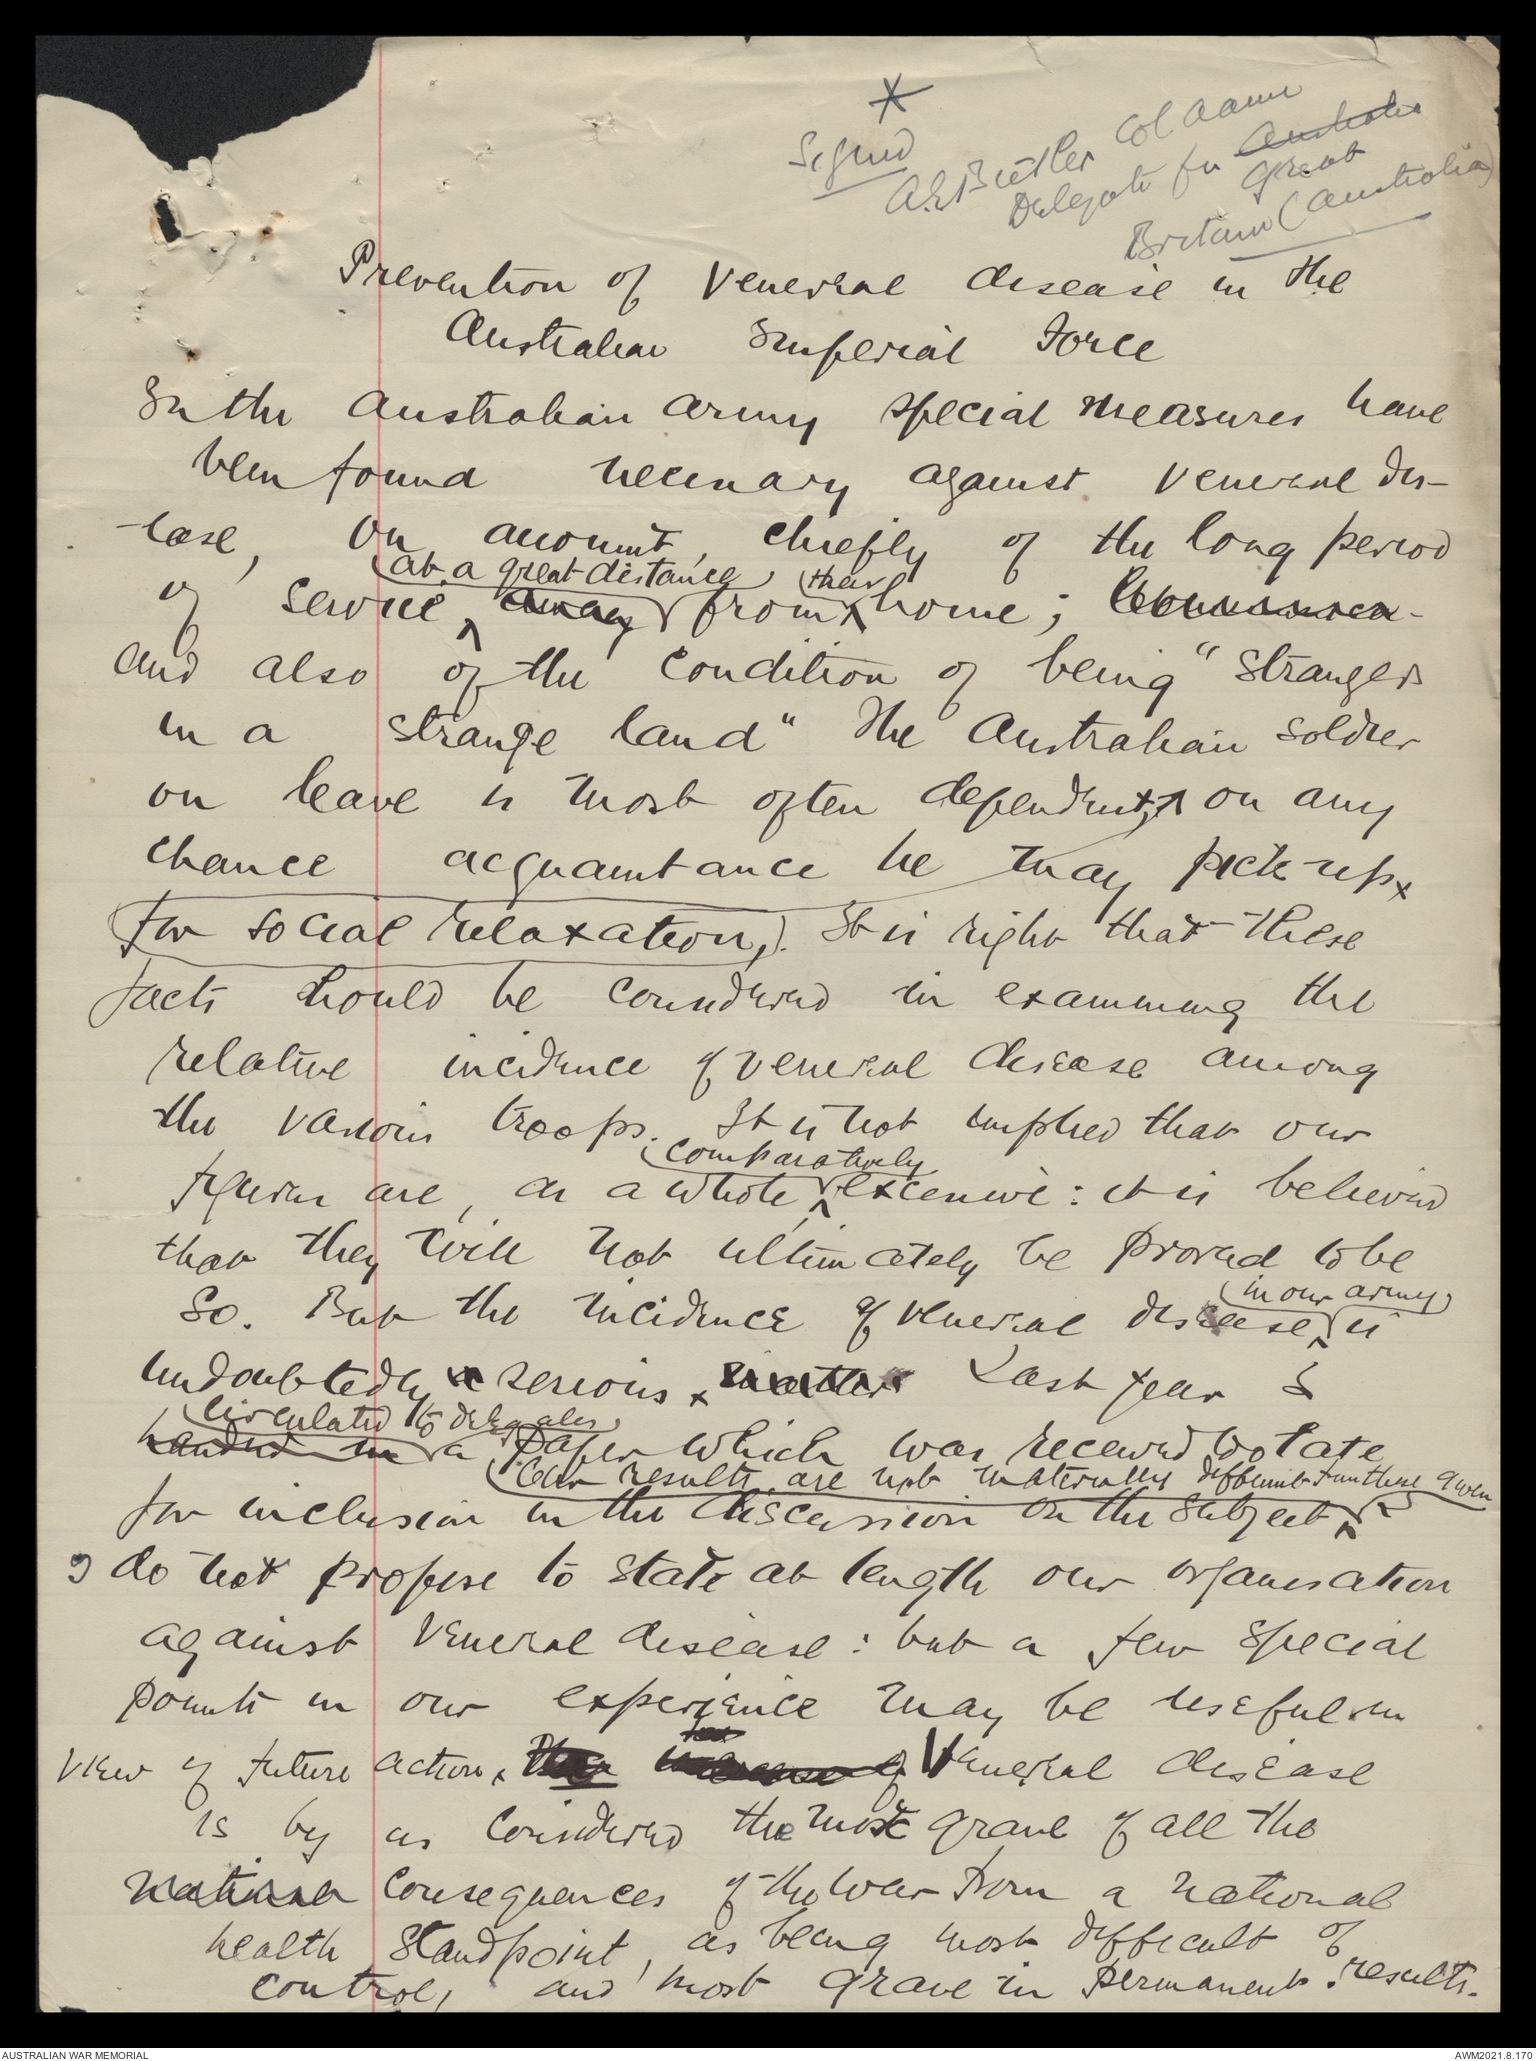 *
Signed
A G Butler Col aamc
Delegate for Australia
Great
Britain (Australia)
Prevention of Venereal disease in the
Australian Imperial Force
In the Australian army special measures have
been found necessary against venereal dis-
-ease, on account, chiefly of the long period
at a great distance their
of service, away from home;
and also of the condition of being "strangers
in a strange land" The Australian soldier
on leave is most often dependent on any
chance acquaintance he may pick up
for social relaxation,). It is right that these
facts should be considered in examining the
relative incidence of venereal disease among
the various troops. It is not implied that our
comparatively
figures are, as a whole excessive: it is believed
that they will not ultimately be proved to be
in our army
so. But the incidence of venereal disease is
undoubtedly a serious matter Last year I
circulated to delegates
handed in a paper which was received too late
Our results are not materially different from those given
for inclusion in the discussion on the subject
I do not propose to state at length our organisation
against venereal disease: but a few special
points in our experience may be useful in
view of future action. The increase of Venereal disease
is by us considered the most grave of all the
national consequences of the war from a national
health standpoint, as being most difficult of
control, and most grave in permanent results.
AUSTRALIAN WAR MEMORIAL
AWM2021.8.170